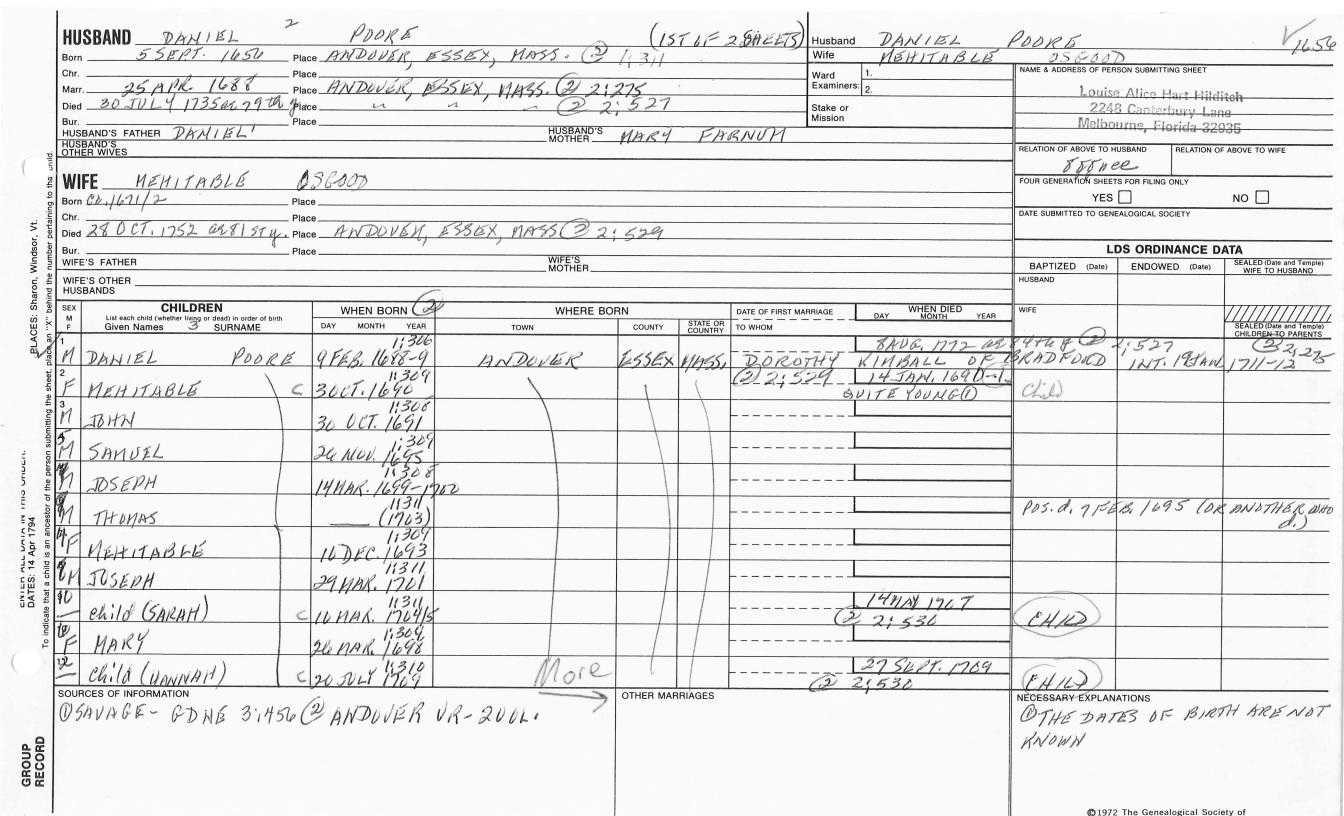 HUSBAND DANIEL 2 POORE (1ST OF 2 SHEETS)
Born 5 SEPT. 1656 Place ANDOVER, ESSEX, MASS. ② 1:311
Chr. Place
Marr. 25 APR. 1688 Place ANDOVER, ESSEX, MASS. ② 2:275
Died 30 JULY 1735 ae 79th y. Place " " " ② 2:527
Bur. Place
HUSBAND'S FATHER DANIEL 1 HUSBAND'S MOTHER MARY FARNUM
HUSBAND'S OTHER WIVES
WIFE MEHITABLE OSGOOD
Born CA. 1671/2 Place
Chr. Place
Died 28 OCT. 1752 ae 81st y. Place ANDOVER, ESSEX, MASS ② 2:529
Bur. Place
WIFE'S FATHER WIFE'S MOTHER
WIFE'S OTHER HUSBANDS
Husband DANIEL POORE 1656
Wife MEHITABLE OSGOOD
Ward Examiners: 1. 2.
Stake or Mission
NAME & ADDRESS OF PERSON SUBMITTING SHEET
Louise Alice Hart Hilditch
2248 Canterbury Lane
Melbourne, Florida 32935
RELATION OF ABOVE TO HUSBAND RELATION OF ABOVE TO WIFE
FOUR GENERATION SHEETS FOR FILING ONLY
YES NO
DATE SUBMITTED TO GENEALOGICAL SOCIETY
LDS ORDINANCE DATA
BAPTIZED (Date) ENDOWED (Date) SEALED (Date and Temple) WIFE TO HUSBAND
HUSBAND
WIFE
SEALED (Date and Temple) CHILDREN TO PARENTS
SEX M F CHILDREN WHEN BORN ② WHERE BORN DATE OF FIRST MARRIAGE WHEN DIED
List each child (whether living or dead) in order of birth
Given Names 3 SURNAME DAY MONTH YEAR TOWN COUNTY STATE OR COUNTRY TO WHOM DAY MONTH YEAR
1 1:306 8 AUG. 1772 ae 84th y ② 2:527 ② 2:275
M DANIEL POORE 9 FEB. 1688-9 ANDOVER ESSEX MASS. DOROTHY KIMBALL OF BRADFORD INT. 19 JAN. 1711-12
2 1:309 ② 2:529 14 JAN. 1690-1
F MEHITABLE C 3 OCT. 1690 QUITE YOUNG ① Child
3 1:306
M JOHN 30 OCT. 1691
1:309
M SAMUEL 26 NOV. 1695
1:308
M JOSEPH 14 MAR. 1699-1700
1:311
M THOMAS (1703) POS. d. 7 FEB. 1695 (OR ANOTHER WHO d.)
1:309
F MEHITABLE 16 DEC. 1693
1:311
M JOSEPH 29 MAR. 1701
10 1:311 14 MAY 1707
child (SARAH) C 16 MAR. 1704/5 ② 2:530 CHILD
1:309
F MARY 26 MAR. 1698
1:310 27 SEPT. 1709
child (HANNAH) C 20 JULY 1709 More ② 2:530 CHILD
SOURCES OF INFORMATION OTHER MARRIAGES NECESSARY EXPLANATIONS
① SAVAGE - GDNE 3:456 ② ANDOVER VR - 2VOL.
① THE DATES OF BIRTH ARE NOT
KNOWN
©1972 The Genealogical Society of
PLACES: Sharon, Windsor, Vt.
ENTER ALL DATA IN THIS ORDER:
DATES: 14 Apr 1794
To indicate that a child is an ancestor of the person submitting the sheet, place an "X" behind the number pertaining to the child.
GROUP
RECORD